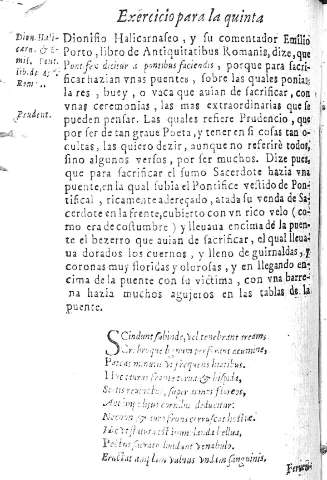 Exercicio para la quinta
Dion. Hali-
carn. &
mis. Pont
lib. de
Rom.
Prudent.
Dionisio Halicarnaseo, y su comentador Emilio
Porto, libro de Antiquitatibus Romanis, dize, que
Pontifex dicitur a pontibus faciendis, porque para sacri-
ficar hazian vnas puentes, sobre las quales ponian
la res, buey, o vaca que auian de sacrificar, con
vnas ceremonias, las mas extraordinarias que se
pueden pensar. Las quales refiere Prudencio, que
por ser de tan graue Poeta, y tener en si cosas tan o-
cultas, las quiero dezir, aunque no referirè todos,
sino algunos versos, por ser muchos. Dize pues,
que para sacrificar el sumo Sacerdote hazia vna
puente, en la qual subia el Pontifice vestido de Pon-
tifical, ricamente adereçado, atada su venda de Sa-
cerdote en la frente, cubierto con vn rico velo (co-
mo era de costumbre) y lleuaua encima de la puen-
te el bezerro que auian de sacrificar, el qual lleua-
ua dorados los cuernos, y lleno de guirnaldas, y
coronas muy floridas y olorosas, y en llegando en-
cima de la puente con su victima, con vna barre-
na hazia muchos agujeros en las tablas de la
puente.
Scindunt subinde, vel tenebrant aream,
Crebroque lignum perforant acumine,
Pateat minutis ve frequens hiatibus.
Huc taurus fronte torua & hispida,
Sertis reuinctus, aut per armos floreis,
Aut impeditus cornibus deducitur:
Nec non & auro frons coruscat hostiae.
Hic vt statuta est immolanda bellua,
Pectus sacrato diuidunt venabulo.
Eructat amplum vulnus vndam sanguinis,